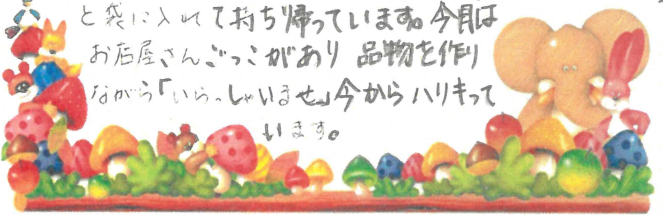 と袋に入れて持ち帰っています。今月は
お店屋さんごっこがあり 品物を作り
ながら「いらっしゃいませ」今からハリキって
います。